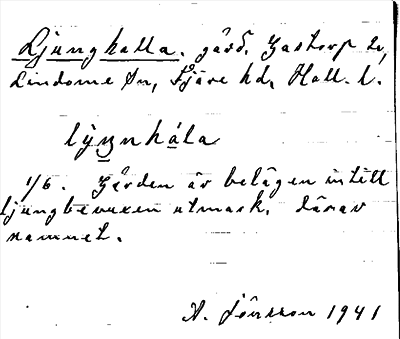 Ljungkalla. gård, Gastorp 2,
Lindome sn, Fjäre hd, Hall. l.
lȳn̲nkāla
1/6. Gården är belägen intill
ljungbevuxen utmark, därav
namnet.
A. Jönsson 1941